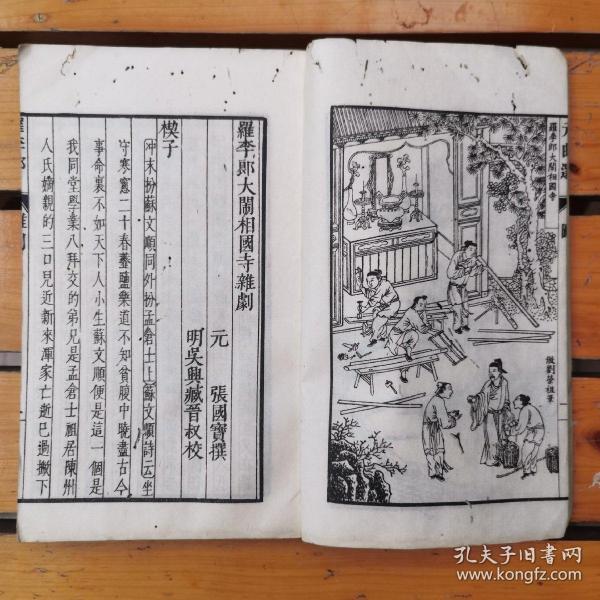 元曲選
圖
羅李郎大鬧相國寺
倣劉榮祖筆
羅李郎大鬧相國寺雜劇
元 張國寶撰
明吳興臧晉叔校
楔子
冲末扮蘇文順同外扮孟倉士上蘇文順詩云坐
守寒窻二十春虀鹽樂道不知貧腹中曉盡古今
事命裏不如天下人小生蘇文順便是這一個是
我同堂學業八拜交的弟兄是孟倉士祖居陳州
人氏嫡親的三口兒近新來渾家亡逝已過撇下
羅李郎
雜劇
一
孔夫子旧书网
www.kongfz.com